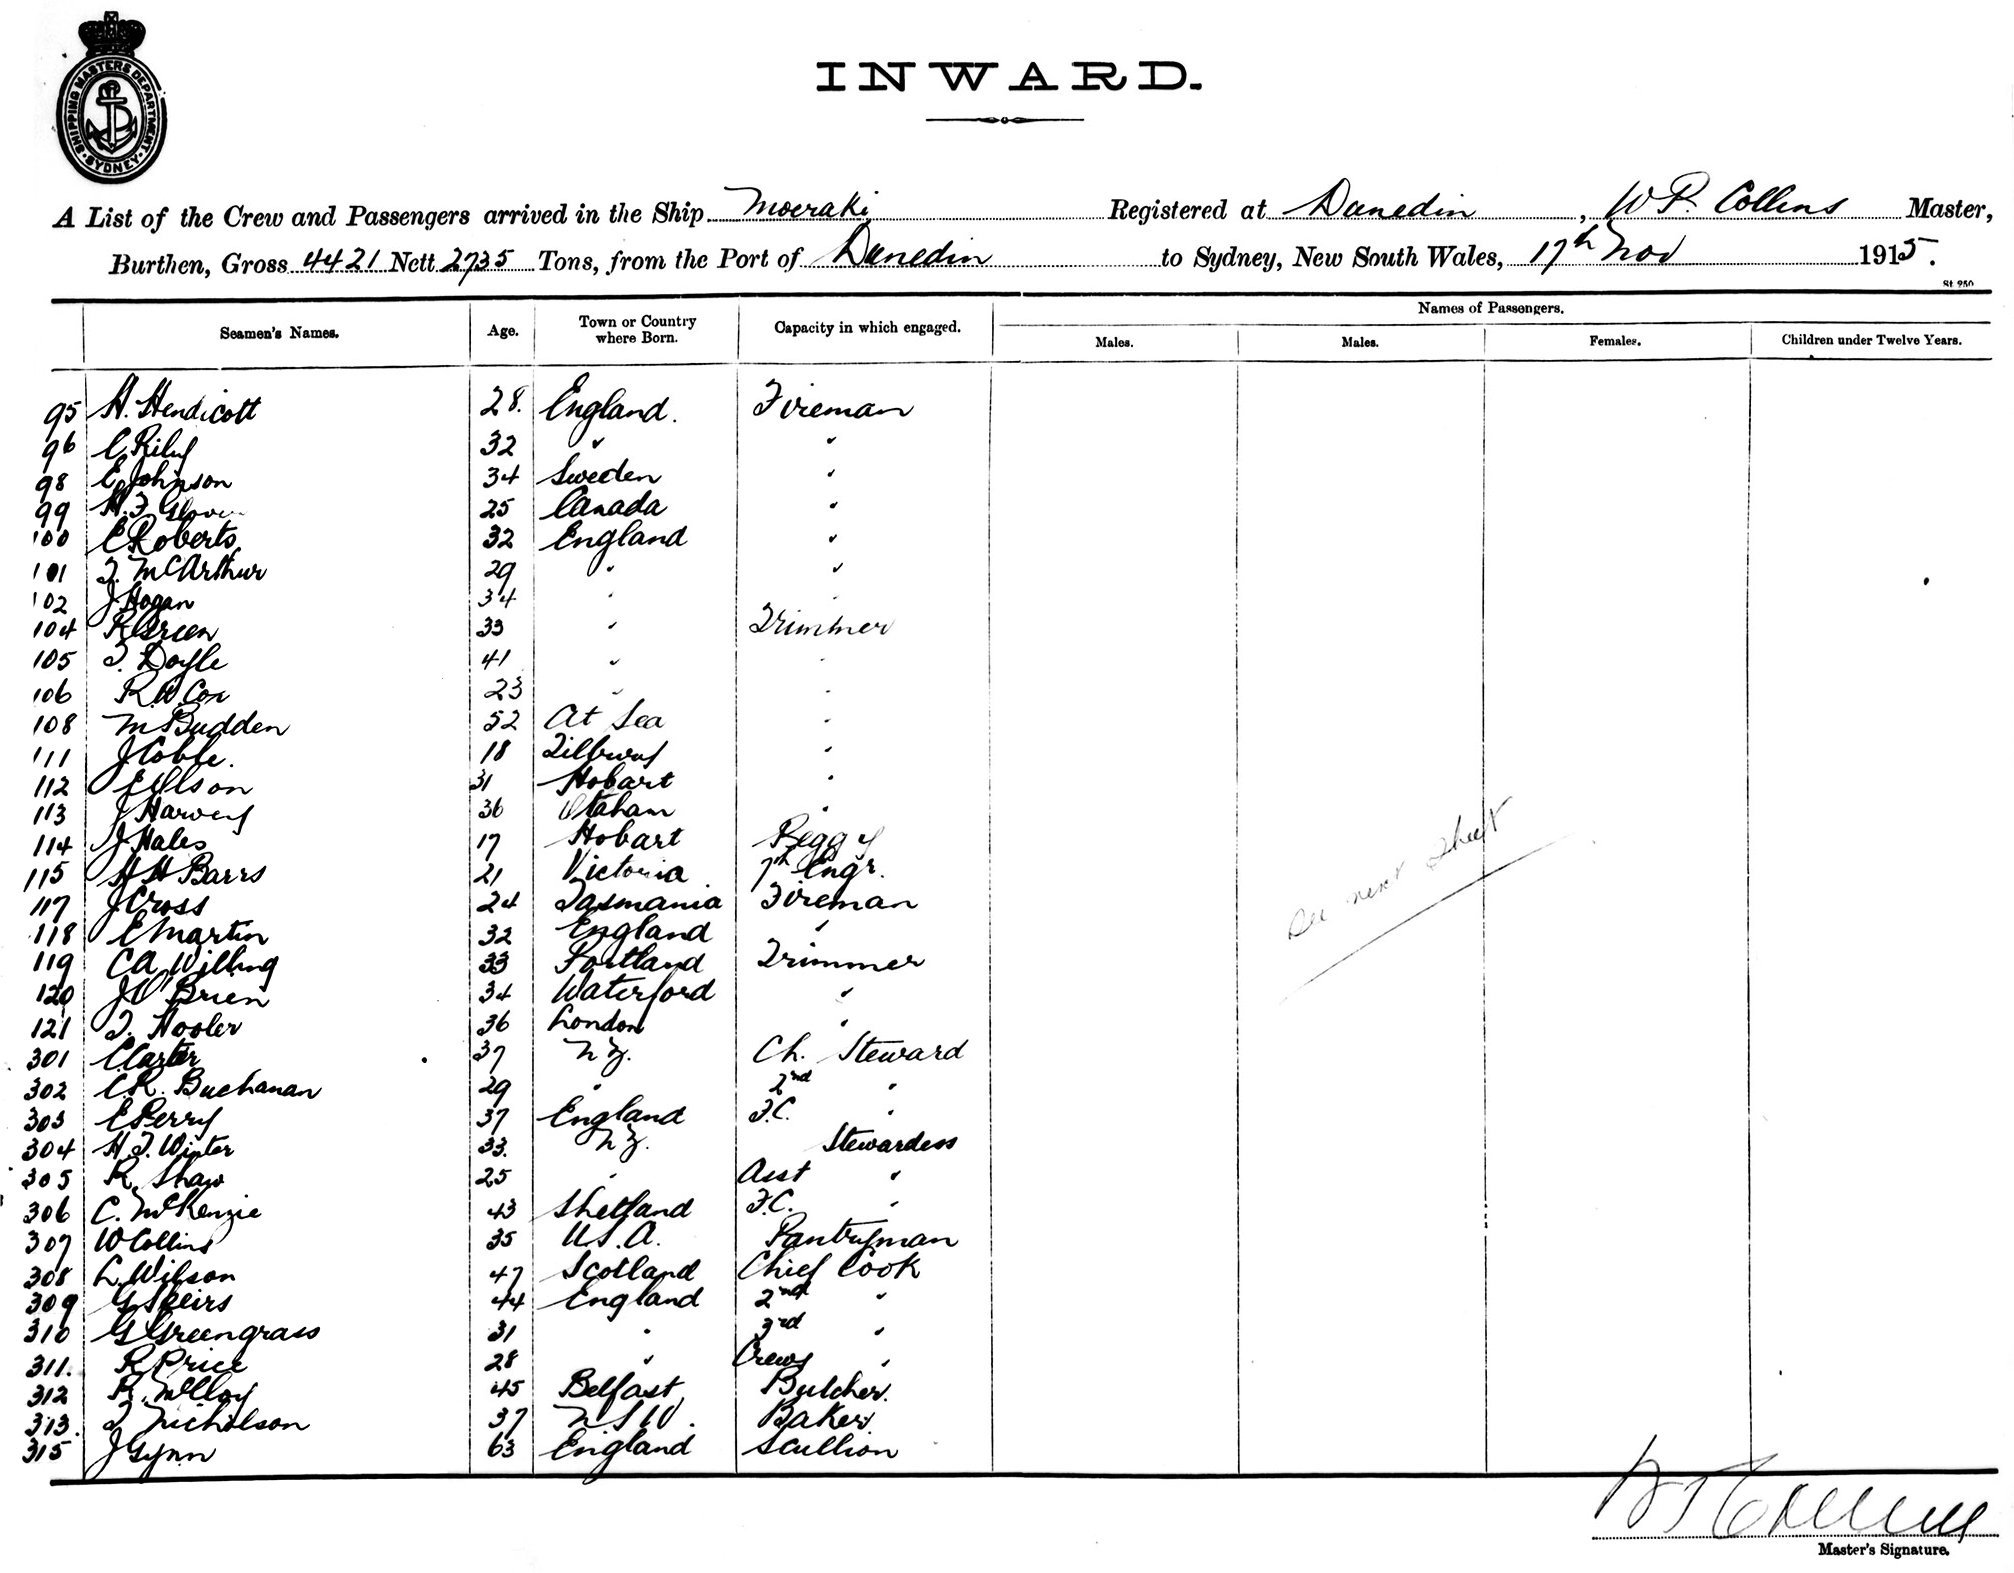 SHIPPING MASTERS DEPARTMENT
SYDNEY
INWARD.
A List of the Crew and Passengers arrived in the Ship Moeraki Registered at Dunedin, W P. Collins Master,
Burthen, Gross 4421 Nett 2735 Tons, from the Port of Dunedin to Sydney, New South Wales, 17th Nov 1915.
St 950
Names of Passengers.
Seamen's Names. Age. Town or Country where Born. Capacity in which engaged. Males. Males. Females. Children under Twelve Years.
95 H. Hendicott 28. England. Fireman
96 C Riley 32 " "
98 E Johnson 34 Sweden "
99 H. F Glover 25 Canada "
100 E Roberts 32 England "
101 T. McArthur 29 " "
102 J Hogan 34 " "
104 R Green 33 " Trimmer
105 T. Doyle 41 " "
106 R. W Cox 23 " "
108 M Budden 52 At Sea "
111 J Coble. 18 Tilbury "
112 E Olson 31 Hobart "
113 J Harvey 36 "
114 J Hales 17 Hobart Peggy
115 H H Barrs 21 Victoria 7th Engr.
117 J Cross 24 Tasmania Fireman
118 E Martin 32 England "
119 C A Willing 33 Portland Trimmer
120 J O'Brien 34 Waterford "
121 T. Hooler 36 London "
301 C Carter 37 N Z. Ch. Steward
302 C. R. Buchanan 29 " 2nd "
303 E Perry 37 England F.C. "
304 H. T. Winter 33. N Z. Stewardess
305 R. Shaw 25 " Asst "
306 C. McKenzie 43 Shetland F.C. "
307 W Collins 35 U.S.A. Pantryman
308 L. Wilson 47 Scotland Chief Cook
309 G Speirs 44 England 2nd "
310 G Greengrass 31 " 3rd "
311. R Price 28 " Crews "
312 R. McCloy 45 Belfast Butcher.
313. T Nicholson 37 N S W. Baker.
315 J Gynn 63 England Scullion
See next Sheet
W P Collins
Master's Signature.